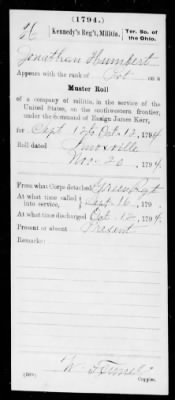 (1794.)
K | Kennedy's Reg't, Militia. | Ter. So. of the Ohio.
Jonathan Humbert
Appears with the rank of Pvt. on a
Muster Roll
of a company of militia, in the service of the
United States, on the southwestern frontier,
under the command of Ensign James Kerr,
for Sept 16 to Oct 12, 1794
Roll dated Knoxville
Nov 20, 1794.
From what Corps detached Green Regt
At what time called into service, Sept 16, 179
At what time discharged Oct 12, 1794.
Present or absent Present
Remarks:
Copyist.